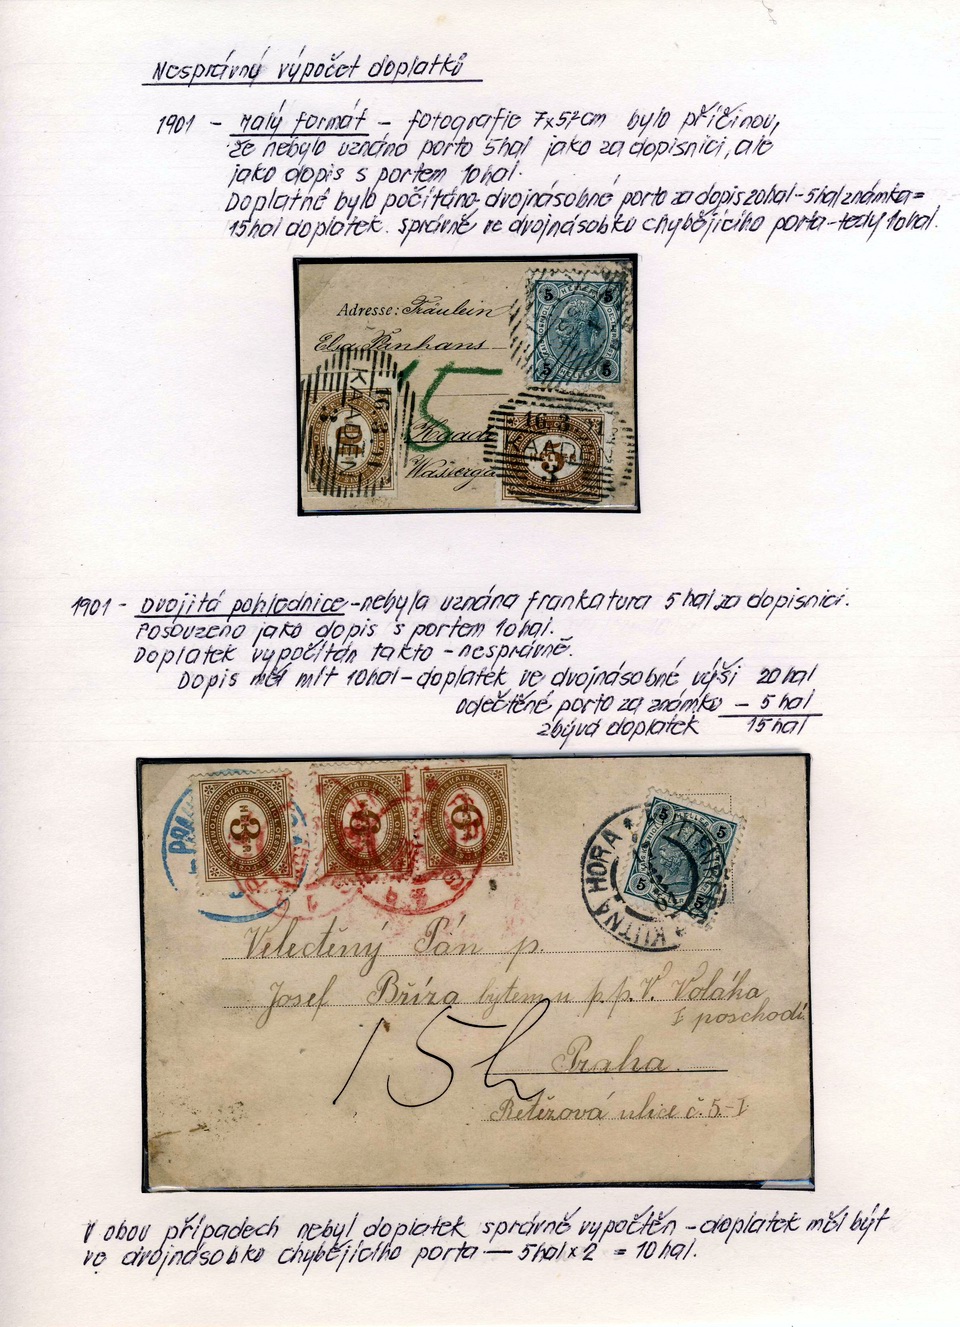 Nesprávný výpočet doplatků
1901 - Malý formát - fotografie 7x5½cm bylo příčinou,
že nebylo uznáno porto 5hal jako za dopisnici, ale
jako dopis s portem 10hal.
Doplatné bylo počítáno dvojnásobné porto za dopis 20hal - 5hal známka =
15hal doplatek. správně ve dvojnásobku chybějícího porta - tedy 10hal.
Adresse: Fräulein
Elsa Panhans
15
Kaade
Wasserga
5 5
HELLER
5 5
KAADEN
16.3
5
16.3
KAAD
1901 - Dvojitá pohlednice - nebyla uznána frankatura 5 hal za dopisnici.
Posouzeno jako dopis s portem 10hal.
Doplatek vypočítán takto - nesprávně.
Dopis měl mít 10hal - doplatek ve dvojnásobné výši 20hal
odečtené porto za známku - 5 hal
zbývá doplatek 15hal
3 HELLER
6
6
5 HELLER 5
5 5
KUTNÁ HORA
Velectěný Pán p.
Josef Bříza bytem u p.p. V. Voláka
I poschodí
15h
Praha.
Retězová ulice č. 5-I
V obou případech nebyl doplatek správně vypočtěn - doplatek měl být
ve dvojnásobku chybějícího porta — 5hal x 2 = 10hal.